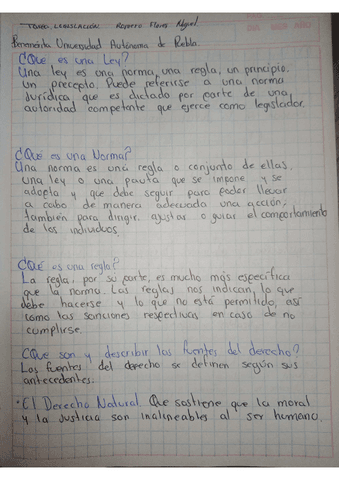 TEMA: LEGISLACIÓN. Romero Flores Miguel
Benemérita Universidad Autónoma de Puebla.
¿Qué es una Ley?
Una ley es una norma, una regla, un principio.
un precepto. Puede referirse a una norma
Jurídica, que es dictado por parte de una
autoridad competente que ejerce como legislador.
¿Qué es una Norma?
Una norma es una regla o conjunto de ellas,
una ley o una pauta que se impone y se
adopta y que debe seguir para poder llevar
a cabo de manera adecuada una acción.
también para dirigir, ajustar o guiar el comportamiento
de los individuos.
¿Qué es una regla?
La regla, por su parte, es mucho más específica
que la norma. Las reglas nos indican, lo que
debe hacerse y lo que no está permitido, así
como las sanciones respectivas en caso de no
cumplirse.
¿Que son y describir las fuentes del derecho?
Las fuentes del derecho se definen según sus
antecedentes.
•El Derecho Natural. Que sostiene que la moral
y la justicia son inalineables al ser humano.